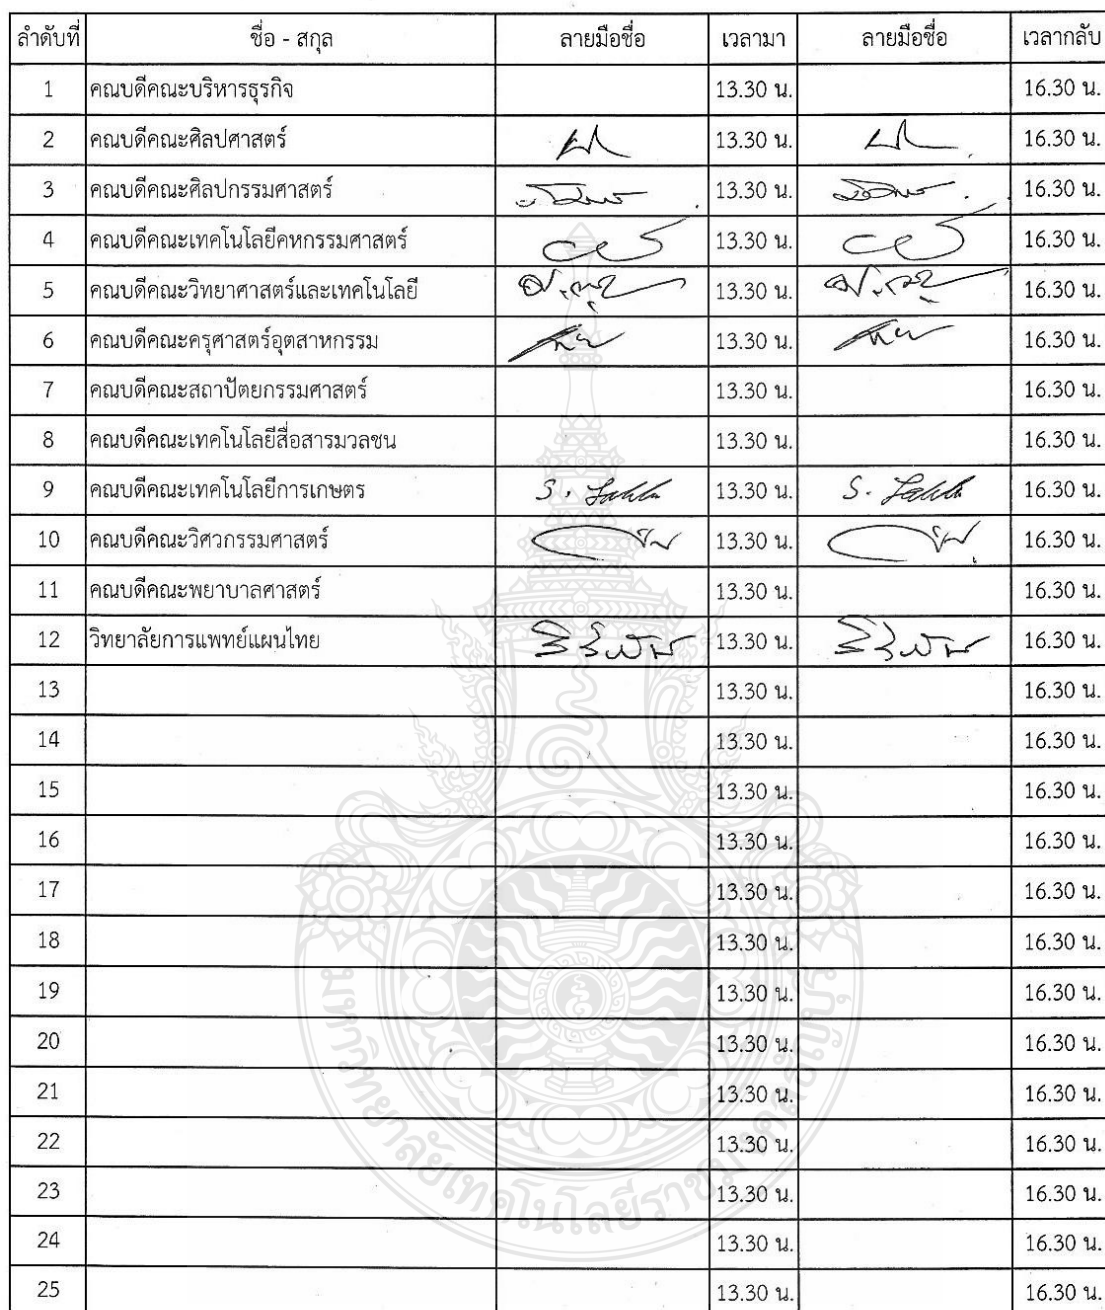 ลำดับที่ ชื่อ - สกุล ลายมือชื่อ เวลามา ลายมือชื่อ เวลากลับ
1 คณบดีคณะบริหารธุรกิจ 13.30 น. 16.30 น.
2 คณบดีคณะศิลปศาสตร์ 13.30 น. 16.30 น.
3 คณบดีคณะศิลปกรรมศาสตร์ 13.30 น. 16.30 น.
4 คณบดีคณะเทคโนโลยีคหกรรมศาสตร์ 13.30 น. 16.30 น.
5 คณบดีคณะวิทยาศาสตร์และเทคโนโลยี 13.30 น. 16.30 น.
6 คณบดีคณะครุศาสตร์อุตสาหกรรม 13.30 น. 16.30 น.
7 คณบดีคณะสถาปัตยกรรมศาสตร์ 13.30 น. 16.30 น.
8 คณบดีคณะเทคโนโลยีสื่อสารมวลชน 13.30 น. 16.30 น.
9 คณบดีคณะเทคโนโลยีการเกษตร 13.30 น. 16.30 น.
10 คณบดีคณะวิศวกรรมศาสตร์ 13.30 น. 16.30 น.
11 คณบดีคณะพยาบาลศาสตร์ 13.30 น. 16.30 น.
12 วิทยาลัยการแพทย์แผนไทย 13.30 น. 16.30 น.
13 13.30 น. 16.30 น.
14 13.30 น. 16.30 น.
15 13.30 น. 16.30 น.
16 13.30 น. 16.30 น.
17 13.30 น. 16.30 น.
18 13.30 น. 16.30 น.
19 13.30 น. 16.30 น.
20 13.30 น. 16.30 น.
21 13.30 น. 16.30 น.
22 13.30 น. 16.30 น.
23 13.30 น. 16.30 น.
24 13.30 น. 16.30 น.
25 13.30 น. 16.30 น.